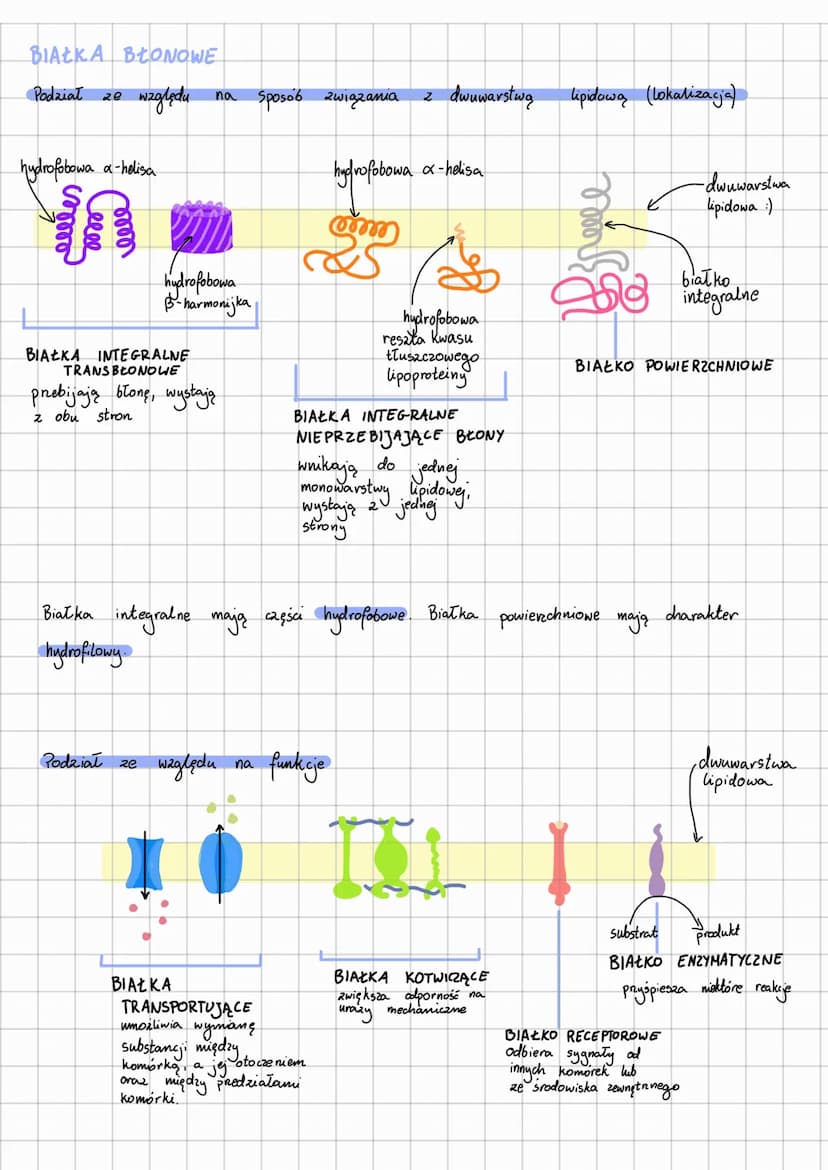 BIAŁKA BŁONOWE
Podział ze względu na sposób związania z dwuwarstwą lipidową (lokalizacja)
hydrofobowa α-helisa
hydrofobowa α-helisa
dwuwarstwa
lipidowa :)
hydrofobowa
β-harmonijka
białko
integralne
hydrofobowa
reszta kwasu
tłuszczowego
lipoproteiny
BIAŁKA INTEGRALNE
TRANSBŁONOWE
przebijają błonę, wystają
z obu stron
BIAŁKO POWIERZCHNIOWE
BIAŁKA INTEGRALNE
NIEPRZEBIJAJĄCE BŁONY
wnikają do jednej
monowarstwy lipidowej,
wystają z jednej
strony
Białka integralne mają części hydrofobowe. Białka powierzchniowe mają charakter
hydrofilowy.
Podział ze względu na funkcje
dwuwarstwa
lipidowa
substrat produkt
BIAŁKA
TRANSPORTUJĄCE
umożliwia wymianę
substancji między
komórką, a jej otoczeniem
oraz między przedziałami
komórki.
BIAŁKA KOTWICZĄCE
zwiększa odporność na
urazy mechaniczne
BIAŁKO RECEPTOROWE
odbiera sygnały od
innych komórek lub
ze środowiska zewnętrznego
BIAŁKO ENZYMATYCZNE
przyśpiesza niektóre reakcje